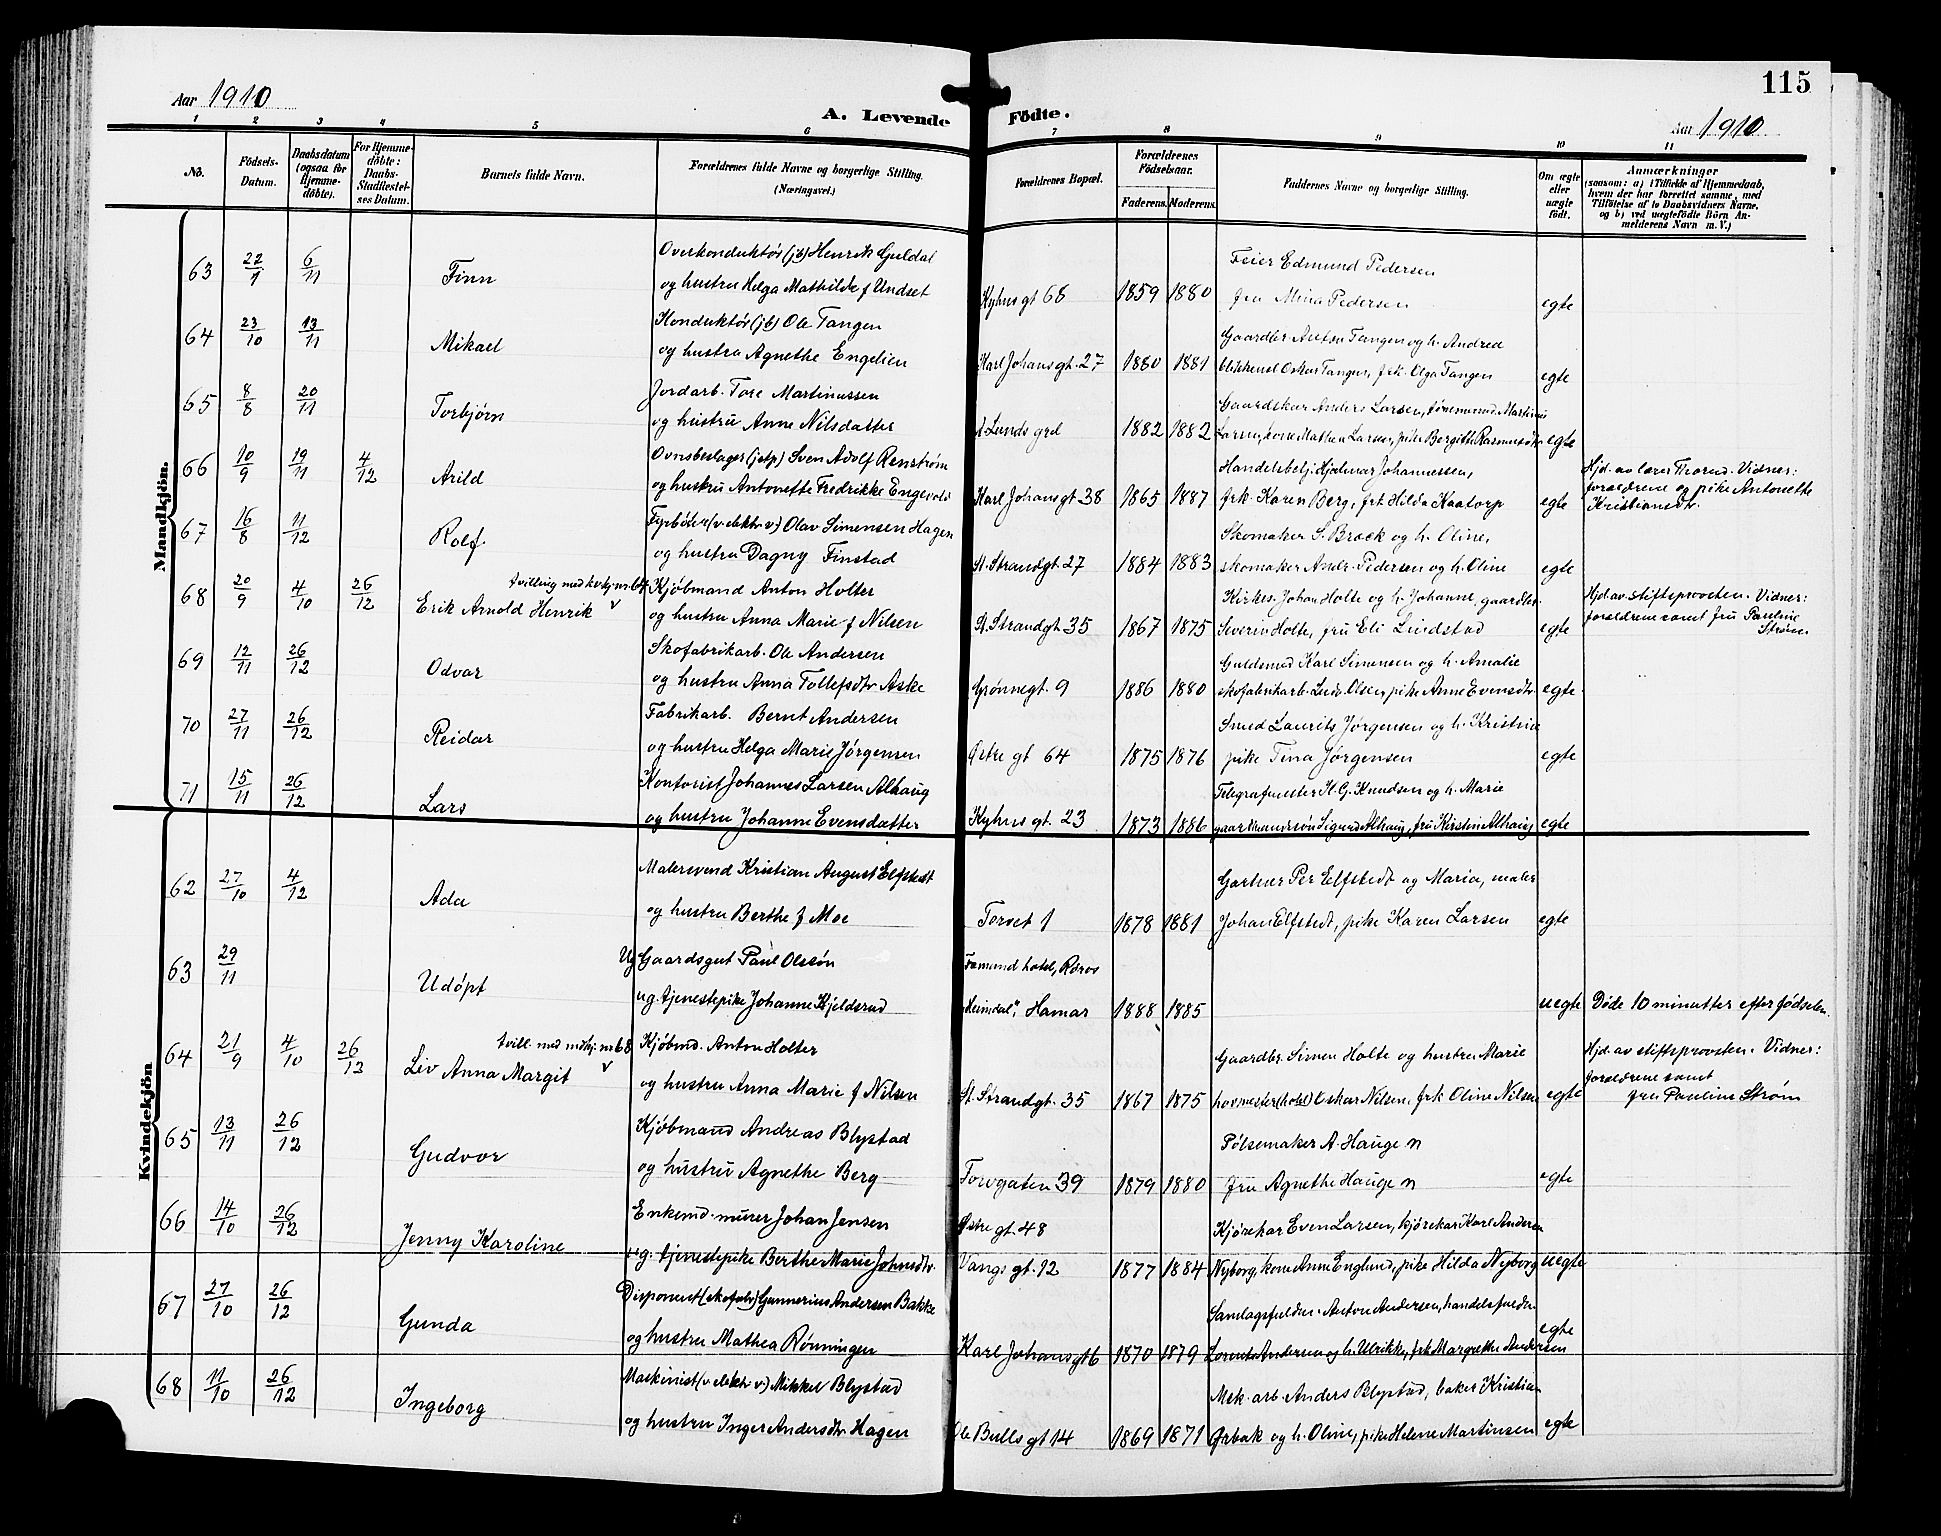 115
Aar 1910
A. Levende Födte.
Aar 1910
1 2 3 4 5 6 7 8 9 10 11
No.
Födsels-Datum.
Daabsdatum (ogsaa for Hjemmedöbte).
For Hjemmedöbte: Daabs-Stadfæstelses Datum.
Barnets fulde Navn.
Forældrenes fulde Navne og borgerlige Stilling. (Næringsvei.)
Forældrenes Bopæl.
Forældrenes Födselsaar.
Faderens. Moderens.
Faddernes Navne og borgerlige Stilling.
Om ægte eller uægte födt.
Anmærkninger (saasom: a) i Tilfælde af Hjemmedaab, hvem der har forrettet samme, med Tilföielse af to Daabsvidners Navne. og b) ved uægtefödte Börn Anmelderens Navn m. V.)
Mandkjön.
63 22/9 6/11 Finn Overkonduktør (jb) Henrik Guldal
og hustru Helga Mathilde f Undset Kyhnsgt 68 1859 1880 Feier Edmund Pedersen
fru Mina Pedersen egte
64 23/10 13/11 Mikael Konduktør (jb) Ole Tangen
og hustru Agnethe Engelien Karl Johansgt. 27 1880 1881 Gaardbr Anton Tangen og h. Andrea
blikkensl Oskar Tangen, frk. Olga Tangen egte
65 8/8 20/11 Torbjørn Jordarb. Tore Martinussen
og hustru Anne Nilsdatter Lunds grd 1882 1882 Gaardskar Anders Larsen, Martinus
Larsen, kone Mathea Larsen, pike Bergitte Rasmusdtr egte
66 10/9 19/11 4/12 Arild Ovnsbeslager (jstp) Sven Adolf Renstrøm
og hustru Antonette Fredrikke Engevold Karl Johansgt 38 1865 1887 Handelsbetj Hjalmar Johannessen,
frk. Karen Berg, frk Hilda Kaatorp egte Hjd. av lærer Thorud. Vidner:
forældrene og pike Antonette
Kristiansdtr.
67 16/8 11/12 Rolf. Fyrbøter (v elektr v) Olav Simensen Hagen
og hustru Dagny Finstad St. Strandgt 27 1884 1883 Skomaker S. Brock og h. Oline,
skomaker Andr. Pedersen og h. Oline egte
68 20/9 4/10 26/12 tvilling med kvkj nr. 64
Erik Arnold Henrik v Kjøbmand Anton Holter
og hustru Anna Marie f Nilsen St. Strandgt 35 1867 1875 Kirkes. Johan Holte og h. Johanne, gaardbr.
Severin Holte, fru Eli Lindstad egte Hjd. av stiftsprovsten. Vidner:
forældrene samt fru Pauline
Strøm
69 12/11 26/12 Odvar Skofabrikarb. Ole Andersen
og hustru Anna Tollefsdtr Aske Grønnegt. 9 1886 1880 Guldsmed Karl Simensen og h. Amalie
skofabrikarb. Ludv. Olsen, pike Anne Evensdtr. egte
70 27/11 26/12 Reidar Fabrikarb. Bernt Andersen
og hustru Helga Marie Jørgensen Østre gt 64 1875 1876 Smed Laurits Jørgensen og h. Kristine
pike Tina Jørgensen egte
71 15/11 26/12 Lars Kontorist Johannes Larsen Alhaug
og hustru Johanne Evensdatter Kyhnsgt. 23 1873 1886 Telegrafmester K. G. Knudsen og h. Marie
gaardmandssøn Sigurd Alhaug, fru Kirstine Alhaug egte
Kvindekjön
62 27/10 4/12 Ada Malersvend Kristian August Elfstedt
og hustru Berthe f Moe Torvet 1 1878 1881 Gartner Per Elfstedt og Maria, maler
Johan Elfstedt, pike Karen Larsen egte
63 29/11 Udøpt Ug Gaardsgut Paul Olssøn
ug. tjenestepike Johanne Kjeldsrud Fæmund hotel, Røros
"Heimdal", Hamar 1888 1885 uegte Døde 10 minutter efter fødselen.
64 21/9 4/10 26/12 tvill. med mdkj. nr 68
Liv Anna Margit v Kjøbmd. Anton Holter
og hustru Anna Marie f Nilsen St. Strandgt. 35 1867 1875 Gaardbr. Simen Holte og hustru Marie
hovmester (hotel) Oskar Nilsen, frk Oline Nilsen egte Hjd. av stiftsprovsten. Vidner:
forældrene samt
fru Pauline Strøm
65 13/11 26/12 Gudvor Kjøbmand Andreas Blystad
og hustru Agnethe Berg Torvgaten 39 1879 1880 Pølsemaker A. Haugen
fru Agnethe Haugen egte
66 14/10 26/12 Jenny Karoline Enkemd. murer Johan Jensen
ug. tjenestepike Berthe Marie Johnsdtr. Østre gt. 48
Vangsgt. 12 1877 1884 Kjørekar Even Larsen, kjørekar Karl Andersen
Nyborg, kone Anne Englund, pike Hilda Nyborg uegte
67 27/10 26/12 Gunda Disponent (skofabr) Gunnerius Andersen Bakke
og hustru Mathea Rønningen Karl Johansgt 6 1870 1879 Anton Andersen,
Lorents Andersen og h. Ulrikke, frk Margrethe Andersen egte
68 11/10 26/12 Ingeborg Maskinist (v elektr v) Mikkel Blystad
og hustru Inger Andersdtr Hagen Ole Bullsgt 14 1869 1871 Mek. arb. Anders Blystad, baker Kristian
Ørbak og h. Oline, pike Helene Martinsen egte